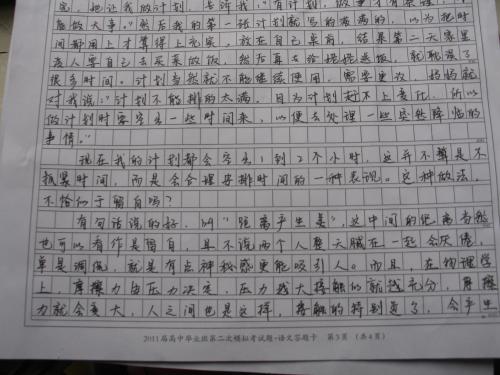 完，她让我做计划，告诉我："有计划，做事才有条理，才
能做大事。"然后我的第一张计划就写的满满的，以为把时
间都用上才算得上充实，放在自己桌前，结果第二天家里
没人要自己去买菜做饭，然后再去给姥姥送饭，就耽误了
很多时间。计划当然就不能继续使用，需要更改，妈妈就
对我说："计划不能排的太满，因为计划赶不上变化，所以
做计划时要字出一些时间来，以便去处理一些突然降临的
事情。"
现在我的计划都会字出1到2个小时，这并不算是不
抓紧时间，而是会合理安排时间的一种表现。这种做法，
不恰似于留白吗？
有句话说的好，叫"距离产生美"，这中间的距离当然
也可以看作是留白，且不说两个人整天腻在一起会厌倦，
单是调侃，就是有点神秘感更能吸引人。而且，在物理学
上，摩擦力由压力决定，压力越大接触的就越充分，摩擦
力就会变大，人之间也是这样，接触的特别近了，会产生
2011届高中毕业班第二次模拟考试题·语文答题卡 第3页 (共4页)